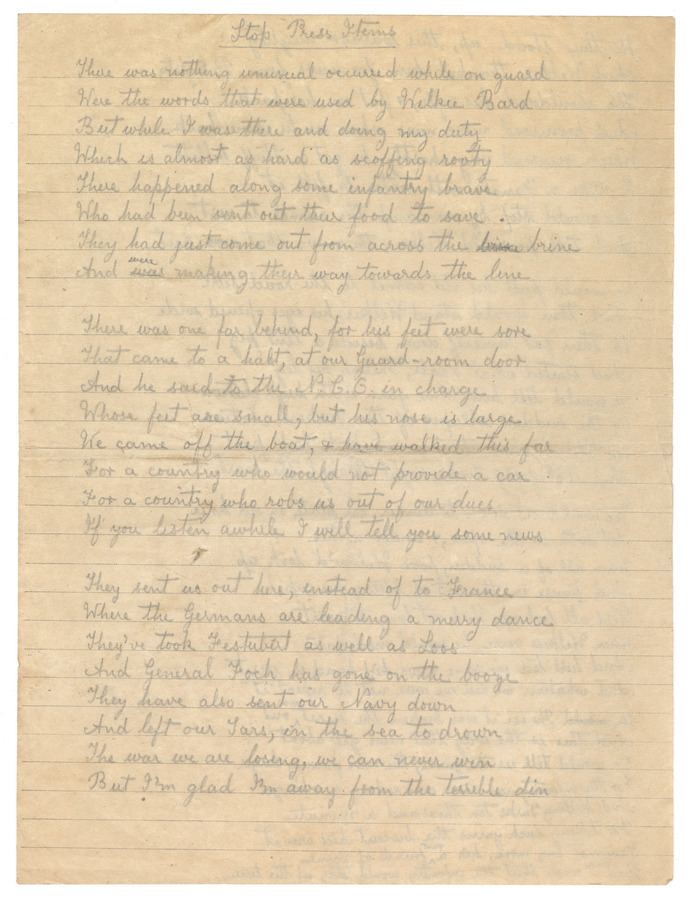 Stop Press Items
There was nothing unusual occurred while on guard
Were the words that were used by Wilkie Bard
But while I was there and doing my duty
Which is almost as hard as scoffing rooty
There happened along some infantry brave
Who had been sent out their food to save .
They had just come out from across the brine
And were was making their way towards the line
There was one far behind, for his feet were sore
That came to a halt, at our Guard-room door
And he said to the N.C.O. in charge
Whose feet are small, but his nose is large
We came off the boat, & have walked this far
For a country who would not provide a car .
For a country who robs us out of our dues
If you listen awhile I will tell you some news
They sent us out here, instead of to France
Where the Germans are leading a merry dance
They've took Festubert as well as Loos
And General Foch has gone on the booze
They have also sent our Navy down
And left our Tars, in the sea to drown
The war we are losing, we can never win
But I'm glad I'm away from the terrible din